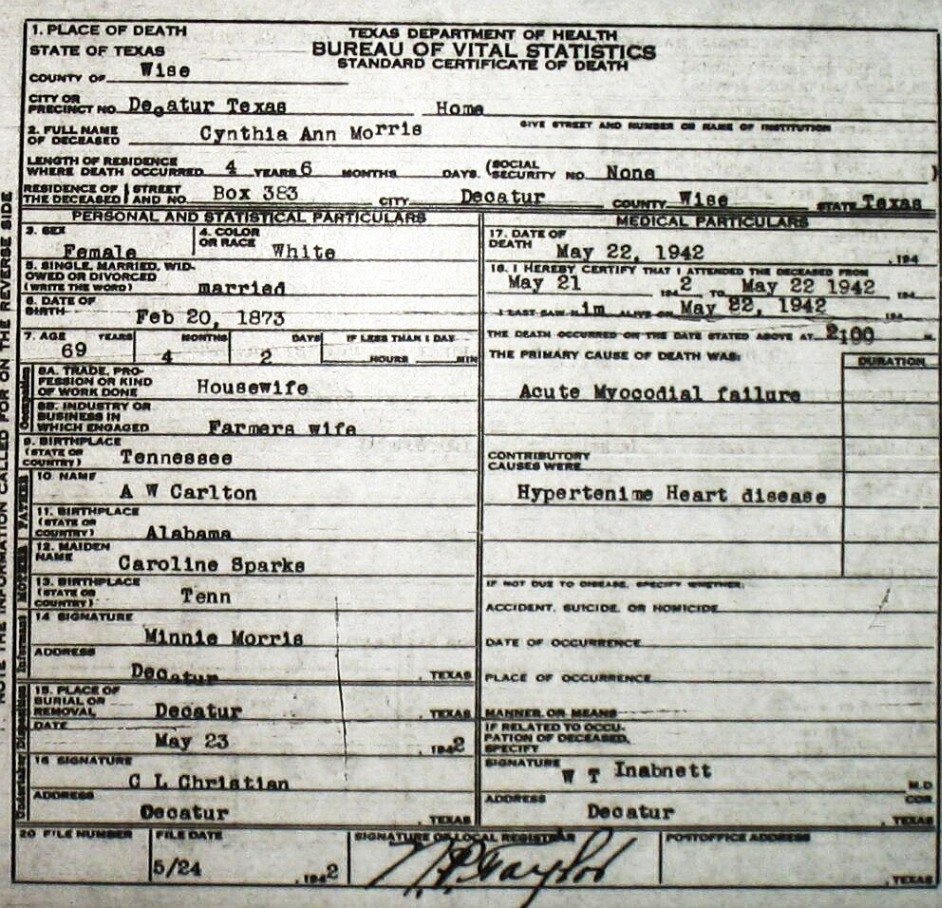 1. PLACE OF DEATH
STATE OF TEXAS
COUNTY OF Wise
TEXAS DEPARTMENT OF HEALTH
BUREAU OF VITAL STATISTICS
STANDARD CERTIFICATE OF DEATH
CITY OR PRECINCT NO. Decatur Texas Home
GIVE STREET AND NUMBER OR NAME OF INSTITUTION
2. FULL NAME OF DECEASED Cynthia Ann Morris
LENGTH OF RESIDENCE WHERE DEATH OCCURRED 4 YEARS 6 MONTHS DAYS. (SOCIAL SECURITY NO. None )
RESIDENCE OF THE DECEASED STREET AND NO. Box 383 CITY Decatur COUNTY Wise STATE Texas
NOTE THE INFORMATION CALLED FOR ON THE REVERSE SIDE
PERSONAL AND STATISTICAL PARTICULARS
3. SEX Female
4. COLOR OR RACE White
5. SINGLE, MARRIED, WIDOWED OR DIVORCED (WRITE THE WORD) married
6. DATE OF BIRTH Feb 20, 1873
7. AGE YEARS MONTHS DAYS IF LESS THAN 1 DAY
69 4 2 HOURS MIN
Occupation
8A. TRADE, PROFESSION OR KIND OF WORK DONE Housewife
8B. INDUSTRY OR BUSINESS IN WHICH ENGAGED Farmers wife
9. BIRTHPLACE (STATE OR COUNTRY) Tennessee
FATHER
10 NAME A W Carlton
11. BIRTHPLACE (STATE OR COUNTRY) Alabama
MOTHER
12. MAIDEN NAME Caroline Sparks
13. BIRTHPLACE (STATE OR COUNTRY) Tenn
Informant
14 SIGNATURE Minnie Morris
ADDRESS Decatur , TEXAS
Undertaker Disposition
15. PLACE OF BURIAL OR REMOVAL Decatur , TEXAS
DATE May 23 , 1942
16 SIGNATURE C L Christian
ADDRESS Decatur , TEXAS
MEDICAL PARTICULARS
17. DATE OF DEATH May 22, 1942 , 194
18. I HEREBY CERTIFY THAT I ATTENDED THE DECEASED FROM
May 21 , 194 2 TO May 22 1942 , 194
I LAST SAW him ALIVE ON May 22, 1942 194
THE DEATH OCCURRED ON THE DATE STATED ABOVE AT 2:00 M.
THE PRIMARY CAUSE OF DEATH WAS: DURATION
Acute Myocodial failure
CONTRIBUTORY CAUSES WERE
Hypertenime Heart disease
IF NOT DUE TO DISEASE, SPECIFY WHETHER:
ACCIDENT, SUICIDE, OR HOMICIDE
DATE OF OCCURRENCE
PLACE OF OCCURRENCE
MANNER OR MEANS
IF RELATED TO OCCUPATION OF DECEASED, SPECIFY
SIGNATURE W T Inabnett M.D. COR
ADDRESS Decatur , TEXAS
20 FILE NUMBER
FILE DATE 5/24 , 1942
SIGNATURE OF LOCAL REGISTRAR
POSTOFFICE ADDRESS , TEXAS